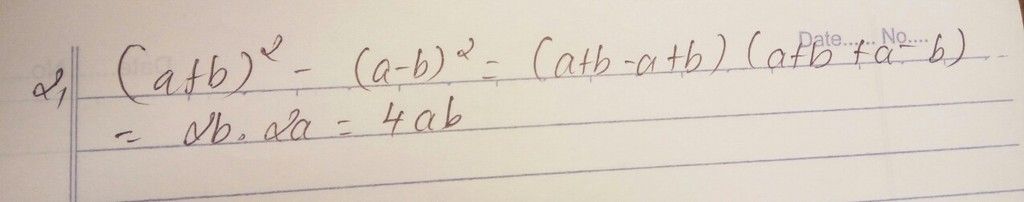 Date...... No....
2, (a+b)² - (a-b)² = (a+b-a+b)(a+b+a-b)
= 2b . 2a = 4ab